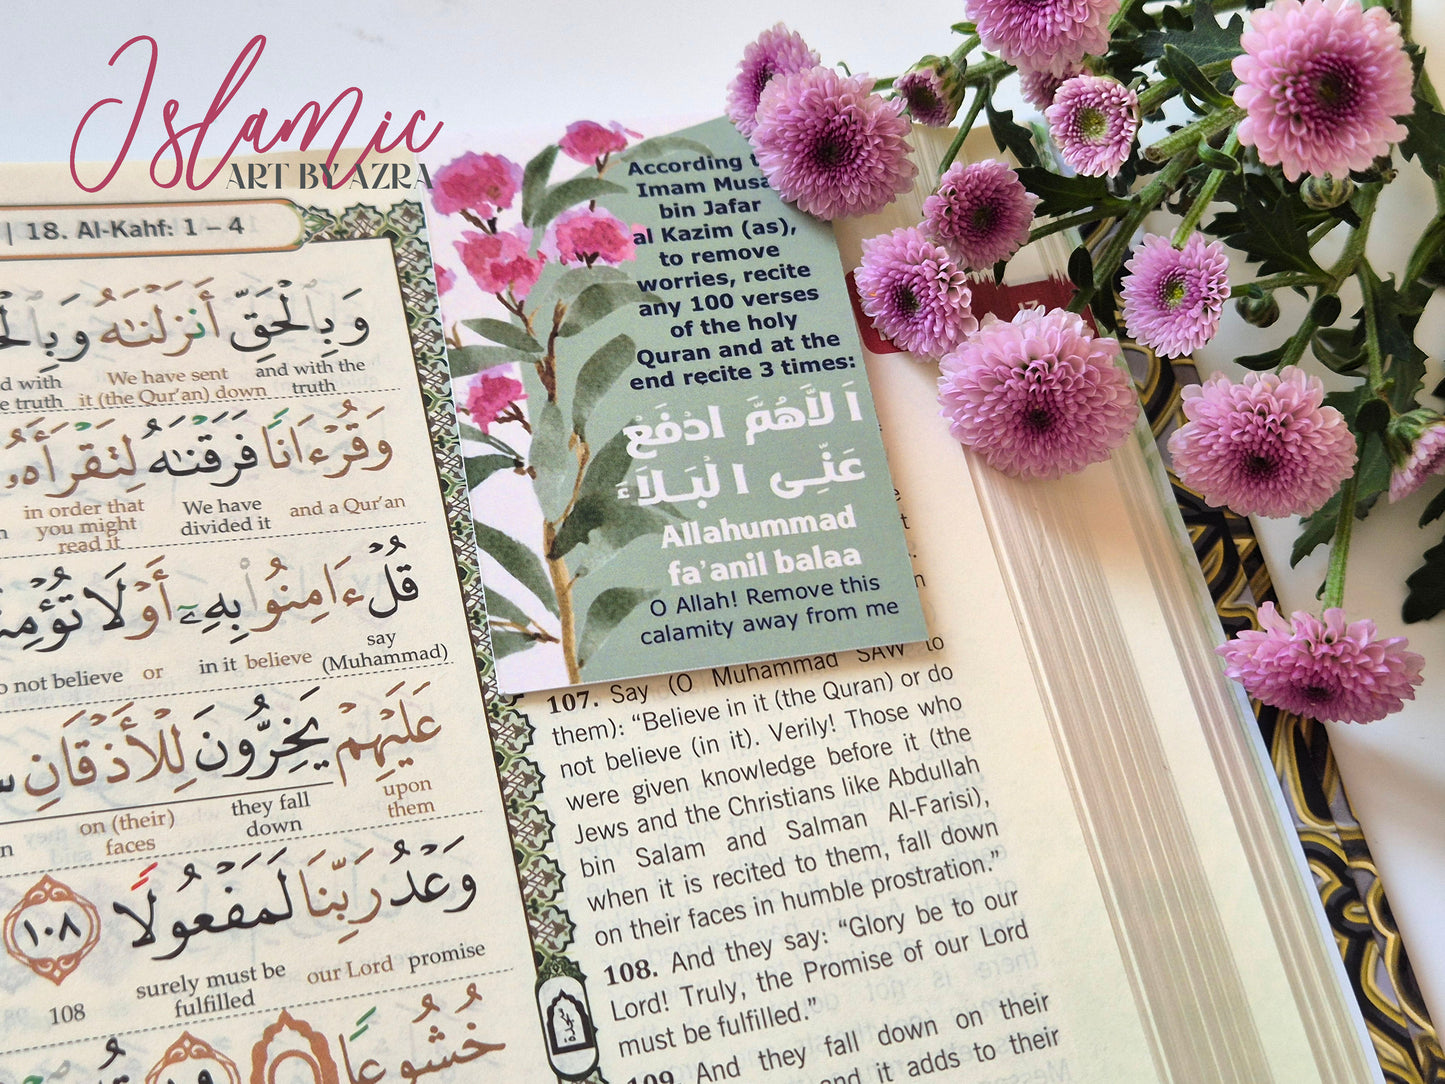 Islamic
ART BY AZRA
| 18. Al-Kahf: 1 – 4
وَبِالْحَقِّ أَنزَلْنَـٰهُ
and with the
truth
We have sent
it (the Qur'an) down
وَقُرْءَانًا فَرَقْنَـٰهُ لِتَقْرَأَهُۥ
and a Qur'an
We have
divided it
in order that
you might
read it
قُلْ ءَامِنُوا۟ بِهِۦٓ أَوْ لَا
say
(Muhammad)
believe
in it
or
not believe
عَلَيْهِمْ يَخِرُّونَ لِلْأَذْقَانِ
upon
them
they fall
down
on (their)
faces
وَعْدُ رَبِّنَا لَمَفْعُولًا ١٠٨
promise
our Lord
surely must be
fulfilled
108
خُشُوعًا
According
Imam Musa
bin Jafar
al Kazim (as),
to remove
worries, recite
any 100 verses
of the holy
Quran and at the
end recite 3 times:
اَلاَّهُمَّ ادْفَعْ
عَنِّى الْبَلَاَءَ
Allahummad
fa'anil balaa
O Allah! Remove this
calamity away from me
107. Say (O Muhammad SAW to
them): “Believe in it (the Quran) or do
not believe (in it). Verily! Those who
were given knowledge before it (the
Jews and the Christians like Abdullah
bin Salam and Salman Al-Farisi),
when it is recited to them, fall down
on their faces in humble prostration.”
108. And they say: “Glory be to our
Lord! Truly, the Promise of our Lord
must be fulfilled.”
109. And they fall down on their
and it adds to their
سجدة
17